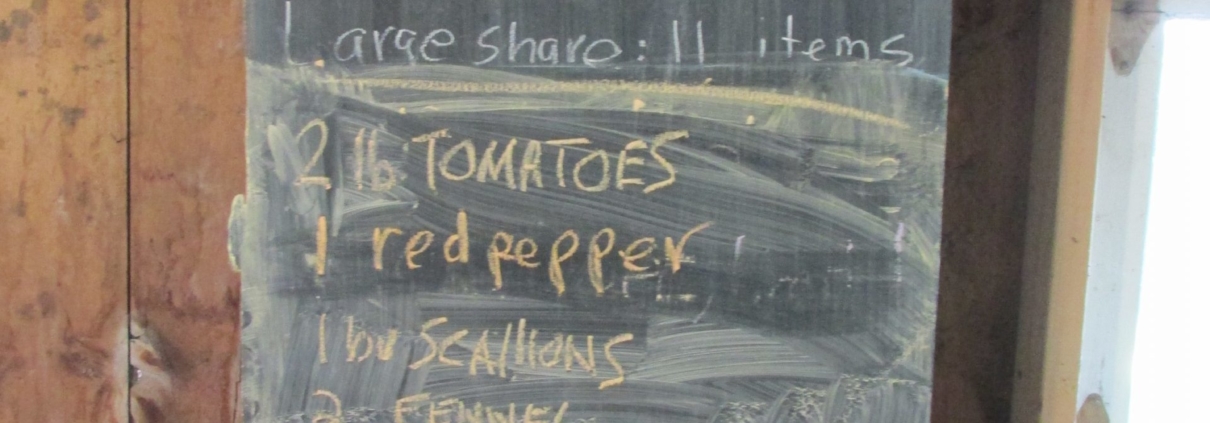 Large share: 11 items
2 lb TOMATOES
1 red pepper
1 bu SCAllIONS
2 FENNEL